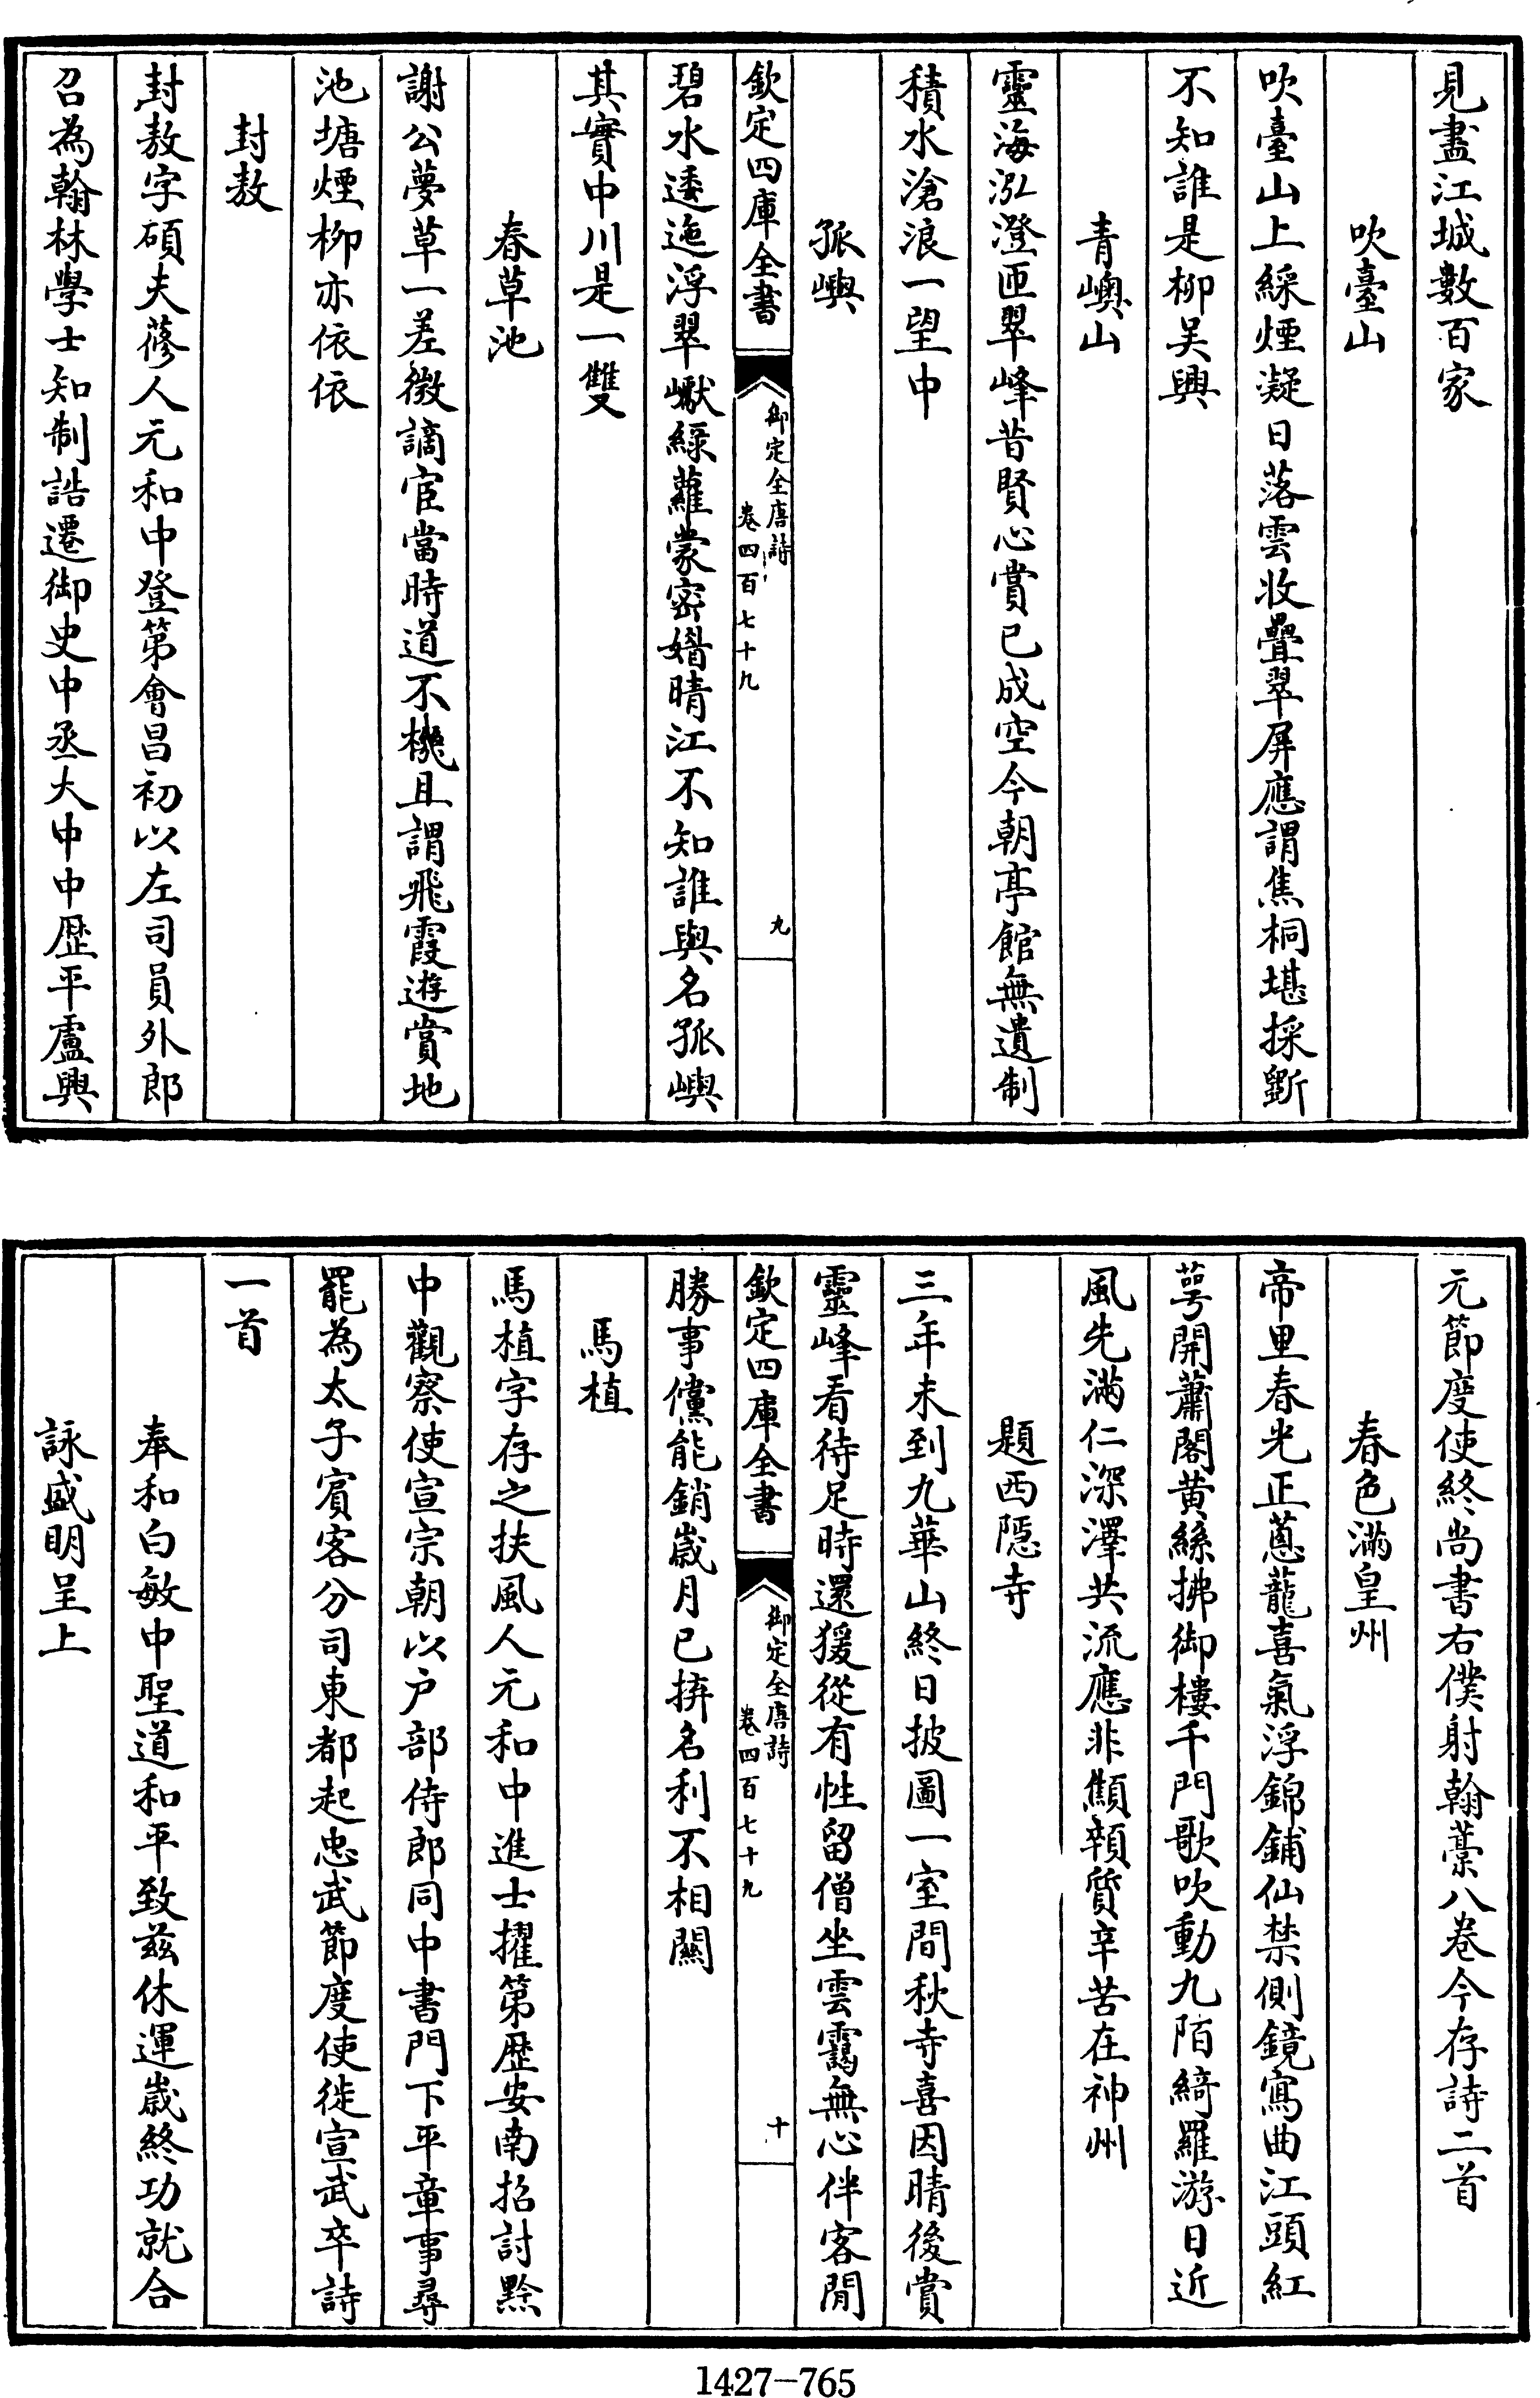 見盡江城數百家
吹臺山
吹臺山上綵煙凝日落雲收疊翠屏應謂焦桐堪採斲
不知誰是柳吳興
青嶼山
靈海泓澄匝翠峰昔賢心賞已成空今朝亭館無遺制
積水滄浪一望中
孤嶼
欽定四庫全書
御定全唐詩
卷四百七十九
九
碧水逶迤浮翠巘綠蘿蒙密媚晴江不知誰與名孤嶼
其實中川是一雙
春草池
謝公夢草一差微謫宦當時道不機且謂飛霞遊賞地
池塘煙柳亦依依
封敖
封敖字碩夫蓨人元和中登第會昌初以左司員外郎
召為翰林學士知制誥遷御史中丞大中中歴平盧興
元節度使終尚書右僕射翰藁八卷今存詩二首
春色滿皇州
帝里春光正蔥蘢喜氣浮錦鋪仙禁側鏡寫曲江頭紅
萼開蕭閣黄絲拂御樓千門歌吹動九陌綺羅游日近
風先滿仁深澤共流應非顦顇質辛苦在神州
題西隠寺
三年未到九華山終日披圖一室間秋寺喜因晴後賞
靈峰看待足時還猨從有性留僧坐雲靄無心伴客閒
欽定四庫全書
御定全唐詩
卷四百七十九
十
勝事儻能銷歲月已拚名利不相關
馬植
馬植字存之扶風人元和中進士擢第歴安南招討黔
中觀察使宣宗朝以户部侍郎同中書門下平章事尋
罷為太子賓客分司東都起忠武節度使徙宣武卒詩
一首
奉和白敏中聖道和平致兹休運歲終功就合
詠盛明呈上
1427-765